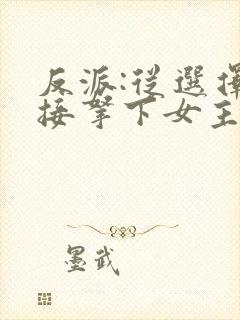 反派:從選擇
接拏下女主
墨武